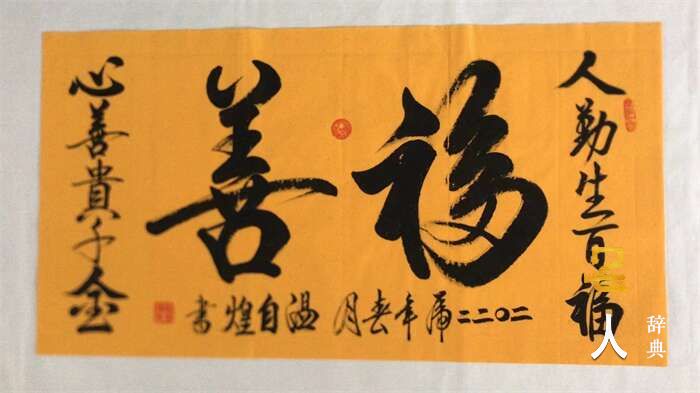 人勤生百福
福善
心善貴千金
二〇二二虎年春月 温自煌书
人
辞典